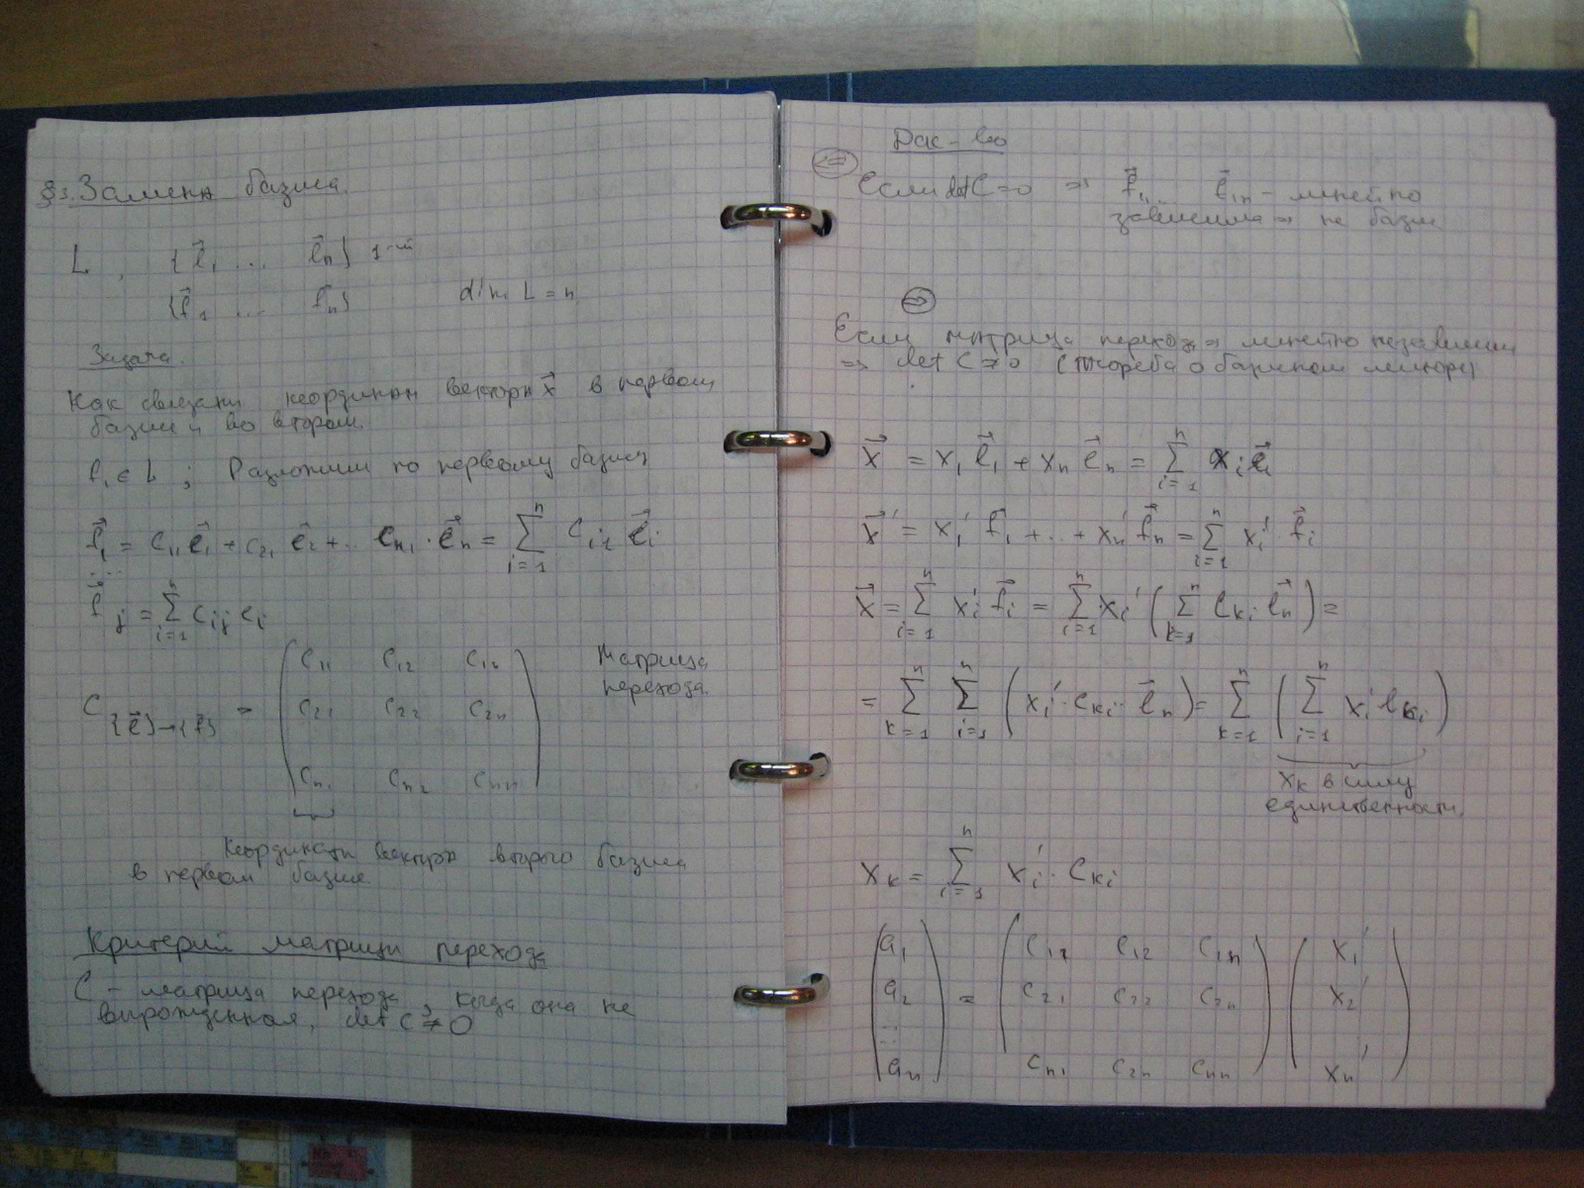 §3. Замена базиса.
L, {e⃗₁ ... e⃗ₙ} 1-ый
{f⃗₁ ... f⃗ₙ} dim L = n
Задача.
Как связаны координаты вектора x⃗ в первом
базисе и во втором.
f₁ ∈ L ; Разложим по первому базису
f⃗₁ = c₁₁ e⃗₁ + c₂₁ e⃗₂ + ... cₙ₁ · e⃗ₙ = ∑ᵢ₌₁ⁿ cᵢ₁ e⃗ᵢ
...
f⃗ⱼ = ∑ᵢ₌₁ⁿ cᵢⱼ eᵢ
C_{e⃗}→{f⃗} = ( c₁₁ c₁₂ c₁ₙ
c₂₁ c₂₂ c₂ₙ
cₙ₁ cₙ₂ cₙₙ )
Матрица
перехода.
Координаты вектора второго базиса
в первом базисе
Критерий матрицы перехода
C - матрица перехода, когда она не
вырожденная, det C ≠ 0
Док-во
⇐
Если det C = 0 ⇒ f⃗₁, ... - линейно
зависима ⇒ не базис
⇒
Если матрица перехода ⇒ линейно независим
⇒ det C ≠ 0 (теорема о базисном миноре)
x⃗ = x₁ e⃗₁ + xₙ e⃗ₙ = ∑ᵢ₌₁ⁿ xᵢ e⃗ᵢ
x⃗' = x₁' f⃗₁ + ... + xₙ' f⃗ₙ = ∑ᵢ₌₁ⁿ xᵢ' · f⃗ᵢ
x⃗ = ∑ᵢ₌₁ⁿ xᵢ' f⃗ᵢ = ∑ᵢ₌₁ⁿ xᵢ' ( ∑ₖ₌₁ⁿ cₖᵢ e⃗ₙ ) =
= ∑ₖ₌₁ⁿ ∑ᵢ₌₁ⁿ ( xᵢ' · cₖᵢ · e⃗ₙ ) = ∑ₖ₌₁ⁿ ( ∑ᵢ₌₁ⁿ xᵢ' cₖᵢ )
xₖ в силу
единственности
xₖ = ∑ᵢ₌₁ⁿ xᵢ' · cₖᵢ
( a₁ ( c₁₁ c₁₂ c₁ₙ ) ( x₁'
a₂ = c₂₁ c₂₂ c₂ₙ x₂'
...
aₙ ) cₙ₁ c₂ₙ cₙₙ xₙ' )